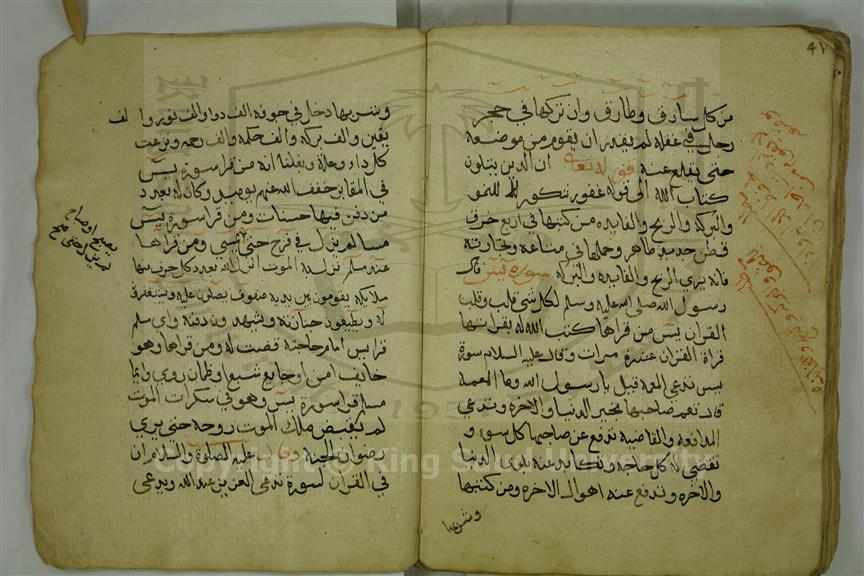 ٤٧
من كل سارق وطارق وان تركها في حجر
رجل في غفلة لم يقدر ان يقوم من موضعه
حتى يقلع عنه قوله تعالى ان الذين يتلون
كتاب الله الى قوله غفور شكور للنمو
والبركة والربح والفايده من كتبها في اربع خرق
قطن جديد طاهر وحملها في متاعه وتجارته
فانه يري الربح والفايده والبركة سورة يس قال
رسول الله صلى الله عليه وسلم لكل شي قلب وقلب
القران يس من قراها كتب الله له بقراءتها
قراة القران عشرة مرات وقال عليه السلام سورة
يس تدعى المعمة قيل يا رسول الله وما المعمة
قال تعم صاحبها بخير الدنيا والاخره وتدعي
المدافعة والقاضية تدفع عن صاحبها كل سوء و
تقضي له كل حاجه وتكابد عنه بلوى الدنيا
والاخره وتدفع عنه اهوال الاخره ومن كتبها
وشربها
وشربها دخل في جوفه الف دوا والف نور وا لف
يقين والف بركه والف حكمه والف رحمه ونزعت
كل داء وعلة ونقلنا انه من قرا سورة يس
في المقابر خفف الله عنهم يوميذ وكان له بعدد
من دفن فيها حسنات ومن قرا سورة يس
مسا لم يزل في فرح حتى يمسي ومن قراها
عند مسلم نزل به الموت انزل الله بعدد كل حرف منها
ملايكه يقومون بين يديه صفوف يصلون عليه ويستغفرون
له ويتبعون جنازته ويشهدون دفنه واي مسلم
قرا يس امام حاجته قضت له ومن قراها وهو
خايف امن او جايع شبع او ظمان روي وايما
مسلم قرا سورة يس وهو في سكرات الموت
لم يقبض ملك الموت روحه حتى يري
رضوان الجنة وقال عليه الصلوة والسلام ان
في القران لسورة تدعى العزيز عند الله ويدعى
Copyright © King Saud University